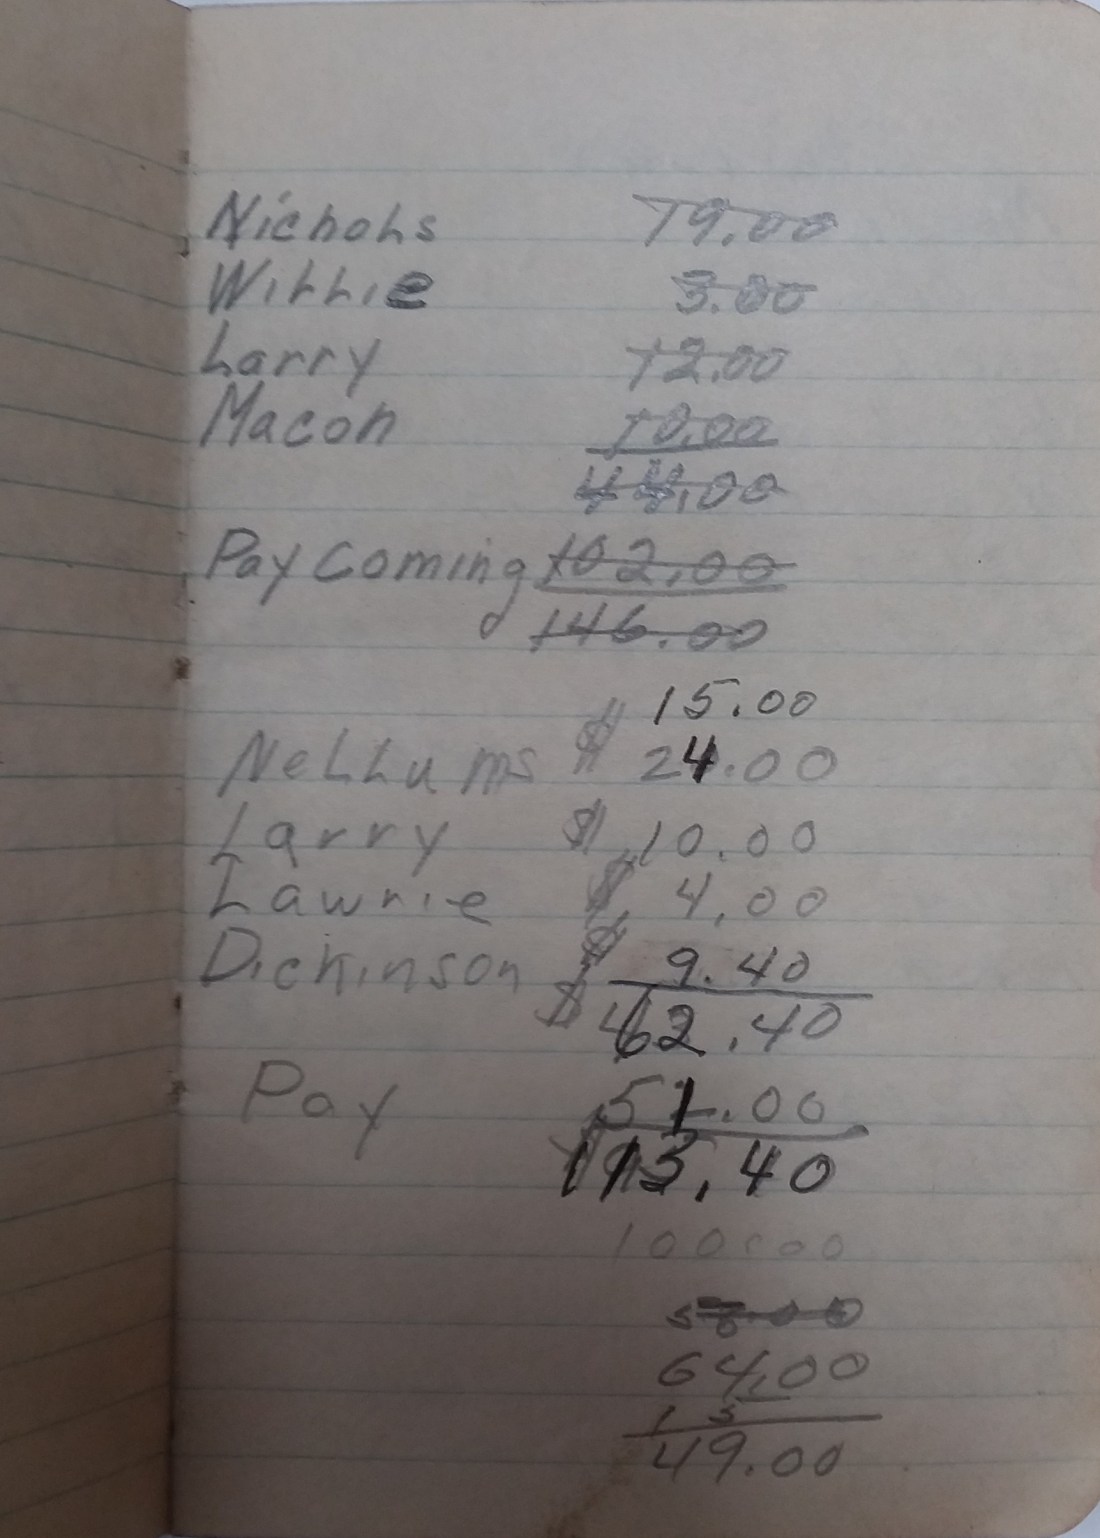 Nichols 19.00
Willie 3.00
Larry 12.00
Macon 10.00
44.00
Pay Coming 102.00
146.00
15.00
Nellums $ 24.00
Larry $ 10.00
Lawrie $ 4.00
Dickinson $ 9.40
$ 62.40
Pay 51.00
113.40
100.00
64.00
15
49.00